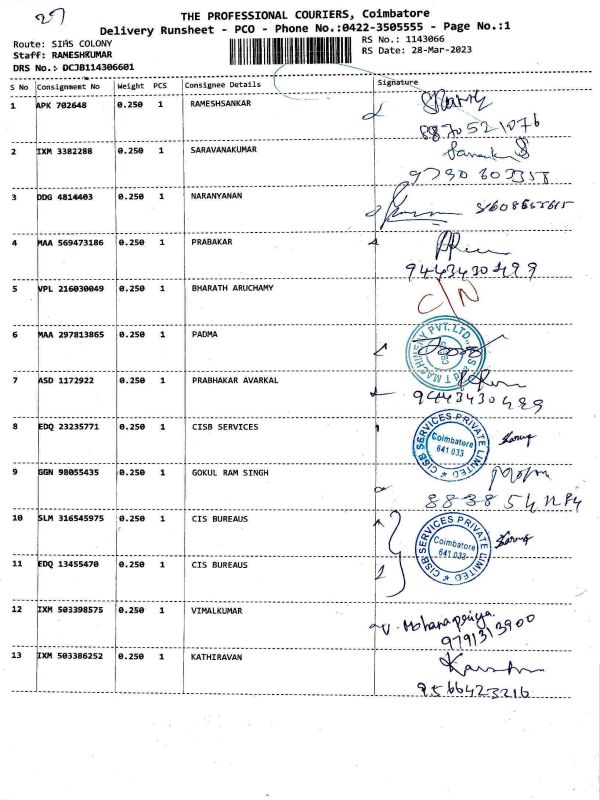 27
THE PROFESSIONAL COURIERS, Coimbatore
Delivery Runsheet - PCO - Phone No.:0422-3505555 - Page No.:1
Route: SIHS COLONY
RS No.: 1143066
Staff: RAMESHKUMAR
RS Date: 28-Mar-2023
DRS No.: DCJB114306601
S No Consignment No Weight PCS Consignee Details Signature
1 APK 702648 0.250 1 RAMESHSANKAR
8870521076
2 IXM 3382288 0.250 1 SARAVANAKUMAR
9790603358
3 DDG 4814403 0.250 1 NARANYANAN
4 MAA 569473186 0.250 1 PRABAKAR
9443430499
5 VPL 216030049 0.250 1 BHARATH ARUCHAMY
C/N
6 MAA 297813865 0.250 1 PADMA
MACHINERY PVT. LTD.
7 ASD 1172922 0.250 1 PRABHAKAR AVARKAL
9443430499
8 EDQ 23235771 0.250 1 CISB SERVICES
CISB SERVICES PRIVATE LIMITED
Coimbatore
641 033
9 GGN 98055435 0.250 1 GOKUL RAM SINGH
10 SLM 316545975 0.250 1 CIS BUREAUS
CISB SERVICES PRIVATE LIMITED
Coimbatore
641 033
11 EDQ 13455470 0.250 1 CIS BUREAUS
12 IXM 503398575 0.250 1 VIMALKUMAR
V. Mohanapriya
9791313900
13 IXM 503386252 0.250 1 KATHIRAVAN
9566423216